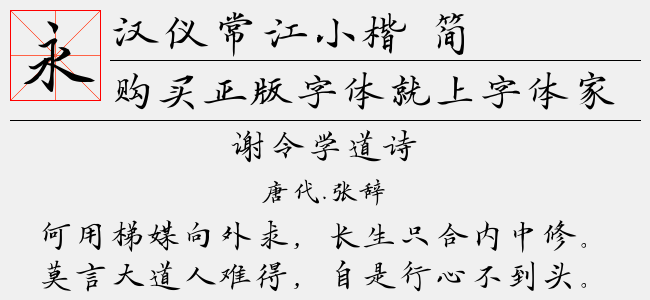 永
汉仪常江小楷 简
购买正版字体就上字体家
谢令学道诗
唐代.张辞
何用梯媒向外求，长生只合内中修。
莫言大道人难得，自是行心不到头。